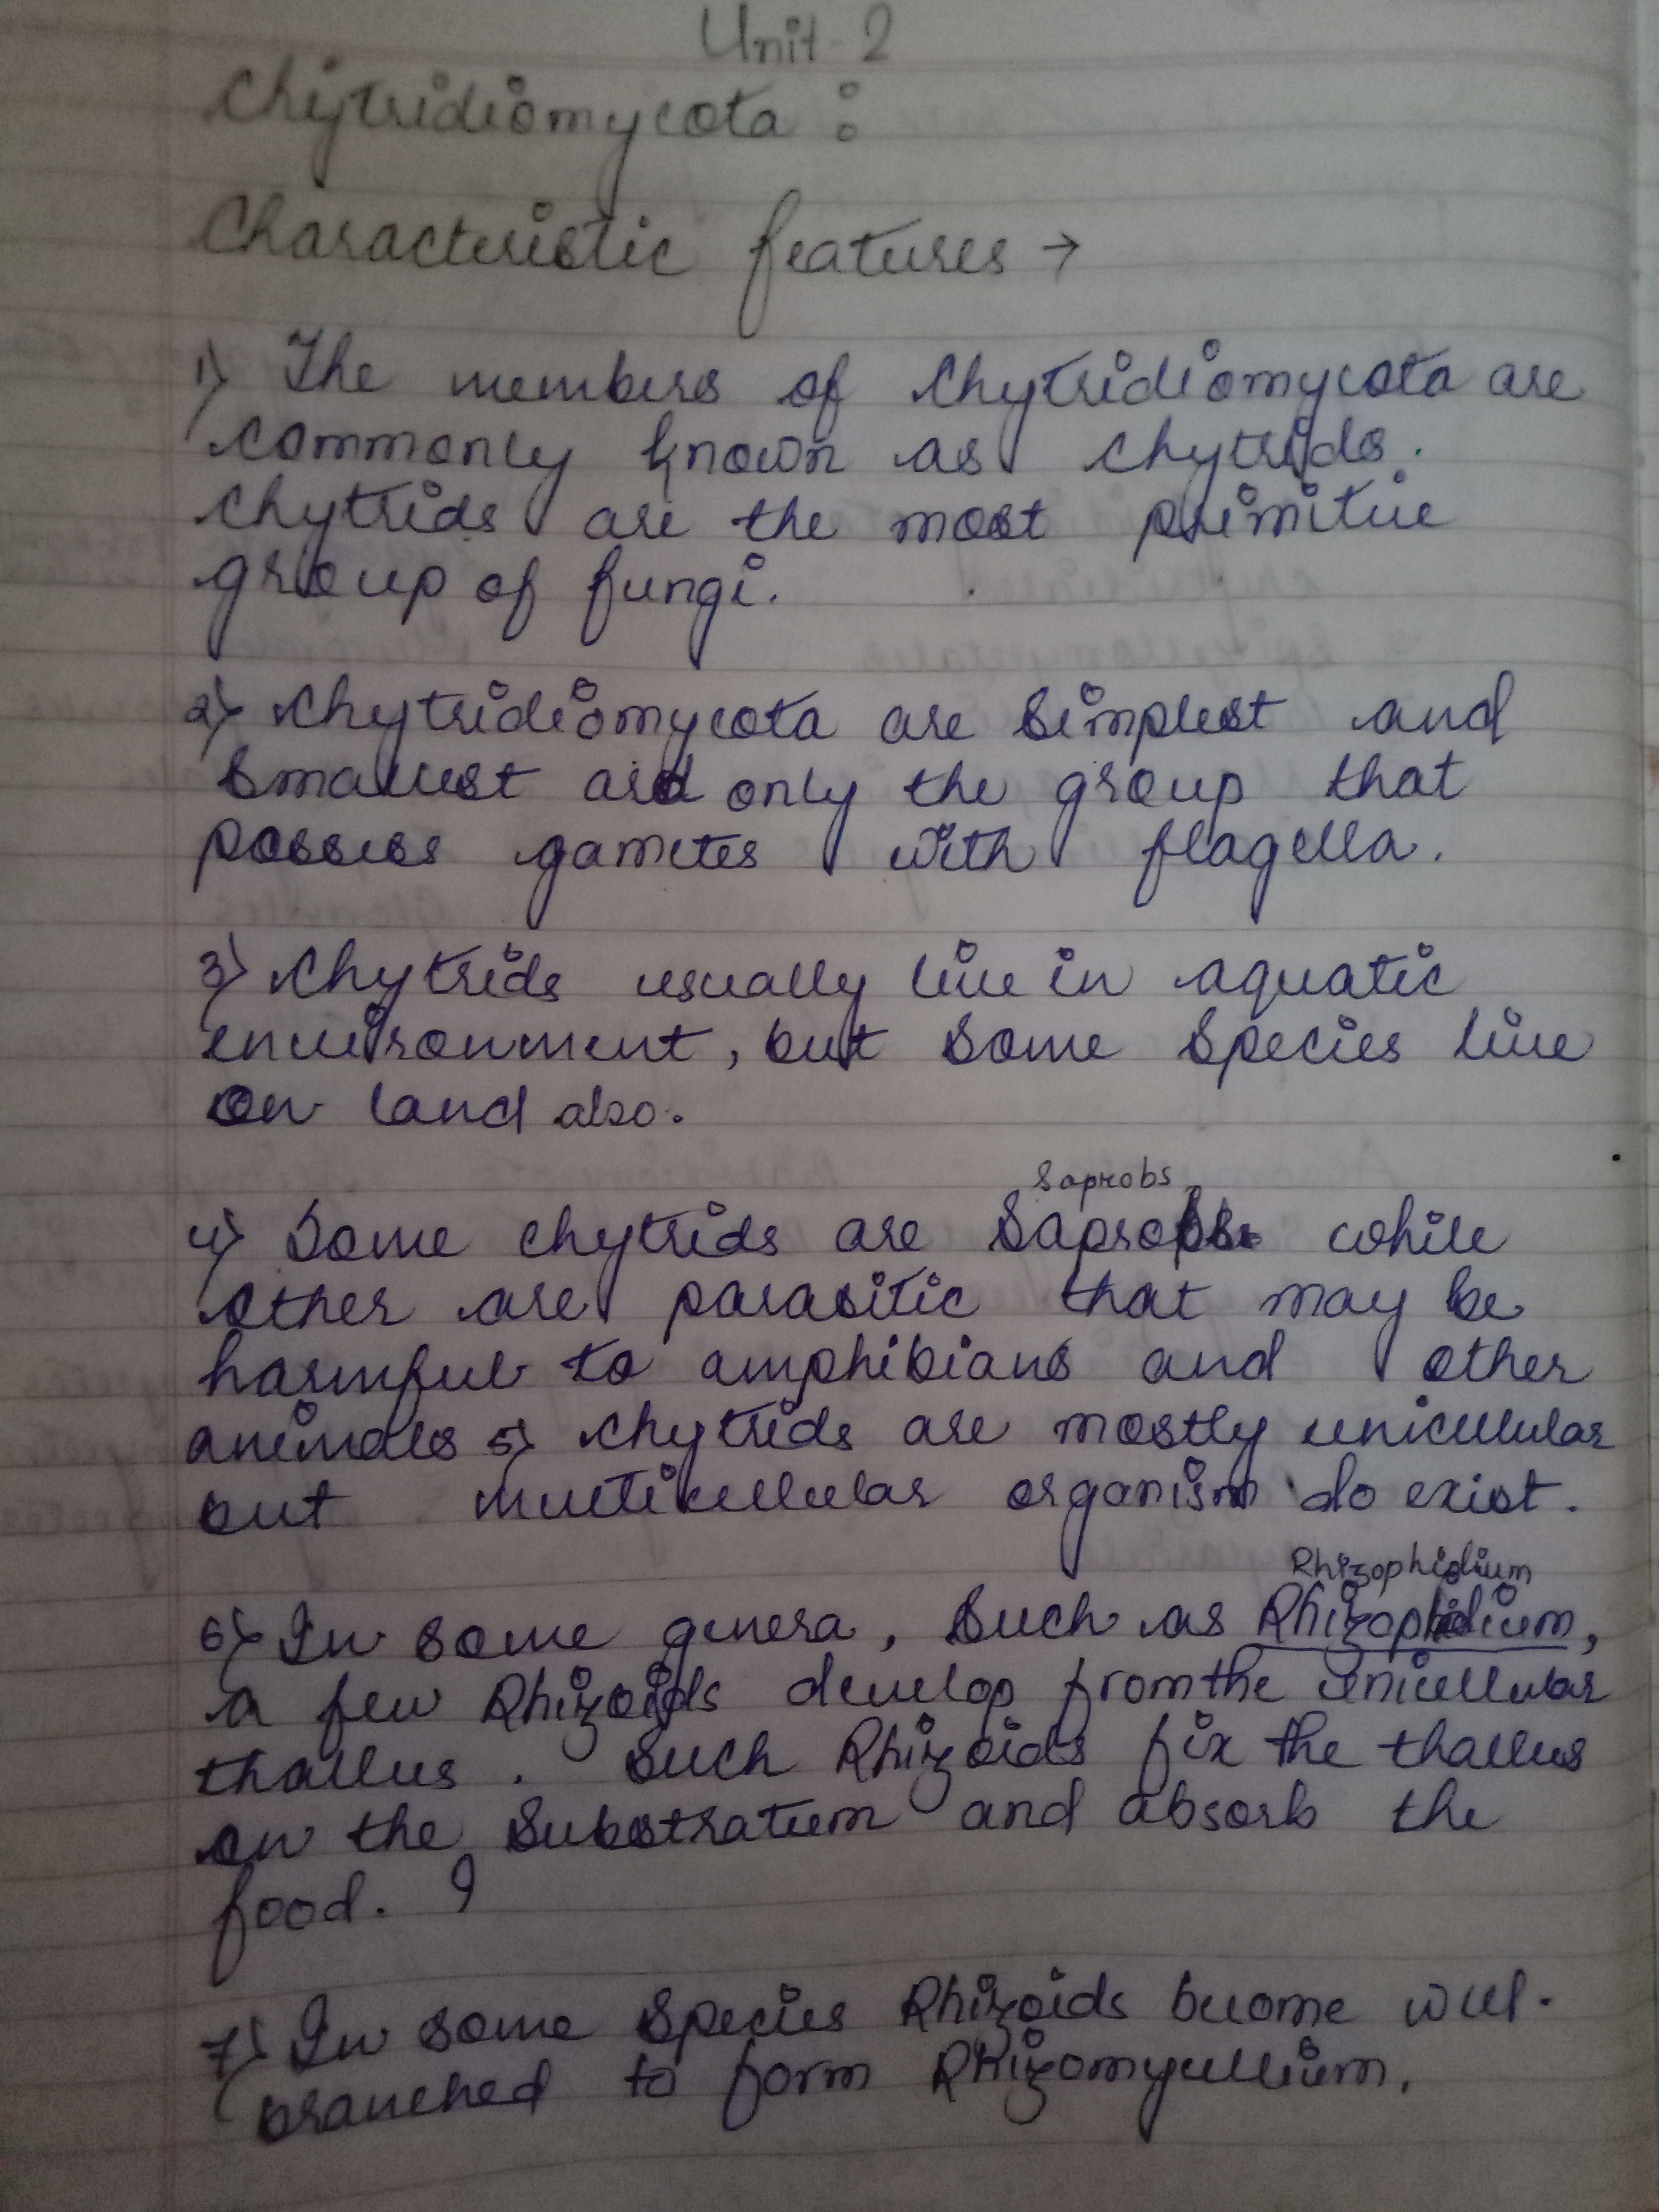 Unit-2
Chytridiomycota :
Characteristic features →
1) The members of Chytridiomycota are
commonly known as chytrids.
Chytrids are the most primitive
group of fungi.
2) Chytridiomycota are simplest and
smallest and only the group that
possess gametes with flagella.
3) Chytrids usually live in aquatic
environment, but some species live
on land also.
Saprobs
4) Some chytrids are Saprobs while
other are parasitic that may be
harmful to amphibians and other
animals 5) Chytrids are mostly unicellular
but multicellular organism do exist.
Rhizophidium
6) In some genera, such as Rhizophidium,
a few Rhizoids develop from the unicellular
thallus. Such Rhizoids fix the thallus
on the substratum and absorb the
food.
7) In some species Rhizoids become well-
branched to form Rhizomycellium.